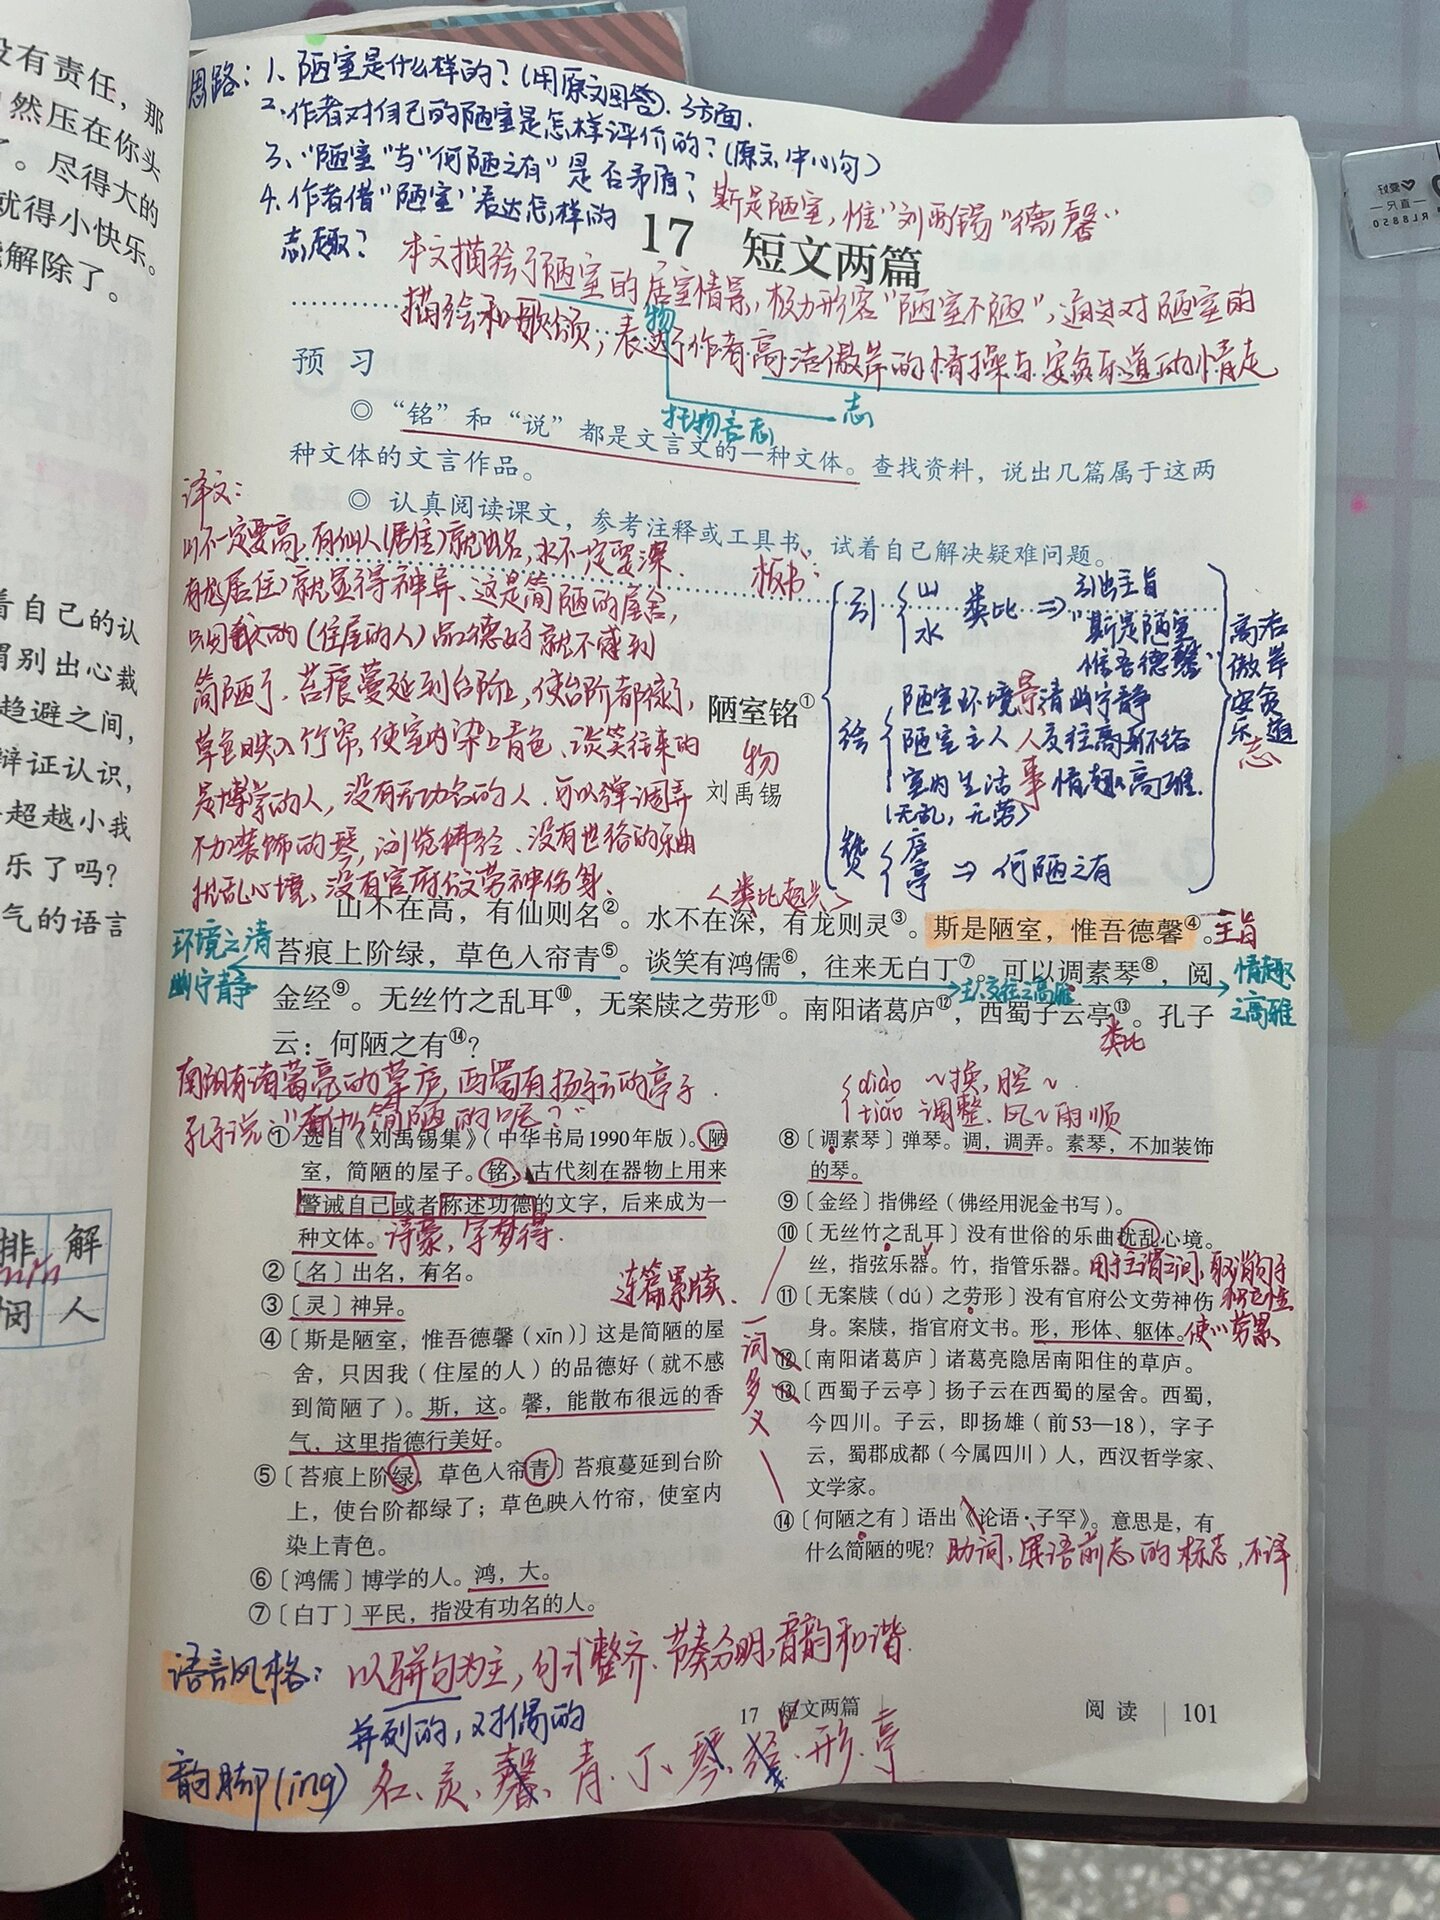 没有责任，那
然压在你头
了。尽得大的
就得小快乐。
解除了。
着自己的认
别出心裁
趋避之间，
辩证认识，
超越小我
乐了吗？
气的语言
排 解
人
思路：1、陋室是什么样的？（用原文回答）、3方面.
2、作者对自己的陋室是怎样评价的？（原文，中心句）
3、"陋室"与"何陋之有"是否矛盾？
4、作者借"陋室"表达怎样的
志趣？
斯是陋室，惟"刘禹锡"德馨"
17 短文两篇
本文描绘了陋室的居室情景，极力形容"陋室不陋"，通过对陋室的
描绘和歌颂，表达了作者高洁傲岸的情操与安贫乐道的情趣
物
托物言志
志
预 习
◎ “铭”和“说”都是文言文的一种文体。查找资料，说出几篇属于这两
种文体的文言作品。
◎ 认真阅读课文，参考注释或工具书，试着自己解决疑难问题。
译文：
山不一定要高，有仙人（居住）就出名，水不一定要深.
有龙（居住）就显得神异、这是简陋的屋舍，
只因我的（住屋的人）品德好就不感到
简陋了、苔痕蔓延到台阶上，使台阶都绿了，
草色映入竹帘，使室内染上青色、谈笑往来的
是博学的人，没有无功名的人.可以弹调弄
不加装饰的琴，浏览佛经、没有世俗的乐曲
扰乱心境、没有官府公文劳神伤身.
板书：
引 山 水 类比 ⇒ 引出主旨
"斯是陋室
惟吾德馨"
绘
陋室环境 景 清幽宁静
陋室主人 人 交往高雅不俗
室内生活 事 情趣高雅.
（无乱，无劳）
赞 庐 亭 ⇒ 何陋之有
高洁
傲岸
安贫
乐道
志
陋室铭①
物
刘禹锡
<类比起兴>
山不在高，有仙则名②。水不在深，有龙则灵③。斯是陋室，惟吾德馨④。
主旨
苔痕上阶绿，草色入帘青⑤。谈笑有鸿儒⑥，往来无白丁⑦。可以调素琴⑧，阅
金经⑨。无丝竹之乱耳⑩，无案牍之劳形⑪。南阳诸葛庐⑫，西蜀子云亭⑬。孔子
云：何陋之有⑭？
环境之清
幽宁静
主人交往之高雅
情趣
之高雅
类比
南阳有诸葛亮的草庐，西蜀有扬子云的亭子.
孔子说："有什么简陋的呢？"
diào ~换，腔~
tiáo 调整、风~雨顺
① 选自《刘禹锡集》（中华书局1990年版）。陋
室，简陋的屋子。铭，古代刻在器物上用来
警诫自己或者称述功德的文字，后来成为一
种文体。
② 〔名〕出名，有名。
③ 〔灵〕神异。
④ 〔斯是陋室，惟吾德馨（xīn）〕这是简陋的屋
舍，只因我（住屋的人）的品德好（就不感
到简陋了）。斯，这。馨，能散布很远的香
气，这里指德行美好。
⑤ 〔苔痕上阶绿，草色入帘青〕苔痕蔓延到台阶
上，使台阶都绿了；草色映入竹帘，使室内
染上青色。
⑥ 〔鸿儒〕博学的人。鸿，大。
⑦ 〔白丁〕平民，指没有功名的人。
连篇累牍.
一词多义
⑧ 〔调素琴〕弹琴。调，调弄。素琴，不加装饰
的琴。
⑨ 〔金经〕指佛经（佛经用泥金书写）。
⑩ 〔无丝竹之乱耳〕没有世俗的乐曲扰乱心境。
丝，指弦乐器。竹，指管乐器。
用于主谓之间，取消句子
独立性
⑪ 〔无案牍（dú）之劳形〕没有官府公文劳神伤
身。案牍，指官府文书。形，形体、躯体。
使…劳累
⑫ 〔南阳诸葛庐〕诸葛亮隐居南阳住的草庐。
⑬ 〔西蜀子云亭〕扬子云在西蜀的屋舍。西蜀，
今四川。子云，即扬雄（前53—18），字子
云，蜀郡成都（今属四川）人，西汉哲学家、
文学家。
⑭ 〔何陋之有〕语出《论语·子罕》。意思是，有
什么简陋的呢？
助词，宾语前志的标志，不译
语言风格：以骈句为主，句式整齐、节奏分明，音韵和谐.
并列的，对偶的
17 短文两篇
阅读 101
韵脚（ing）名、灵、馨、青、丁、琴、经、形、亭